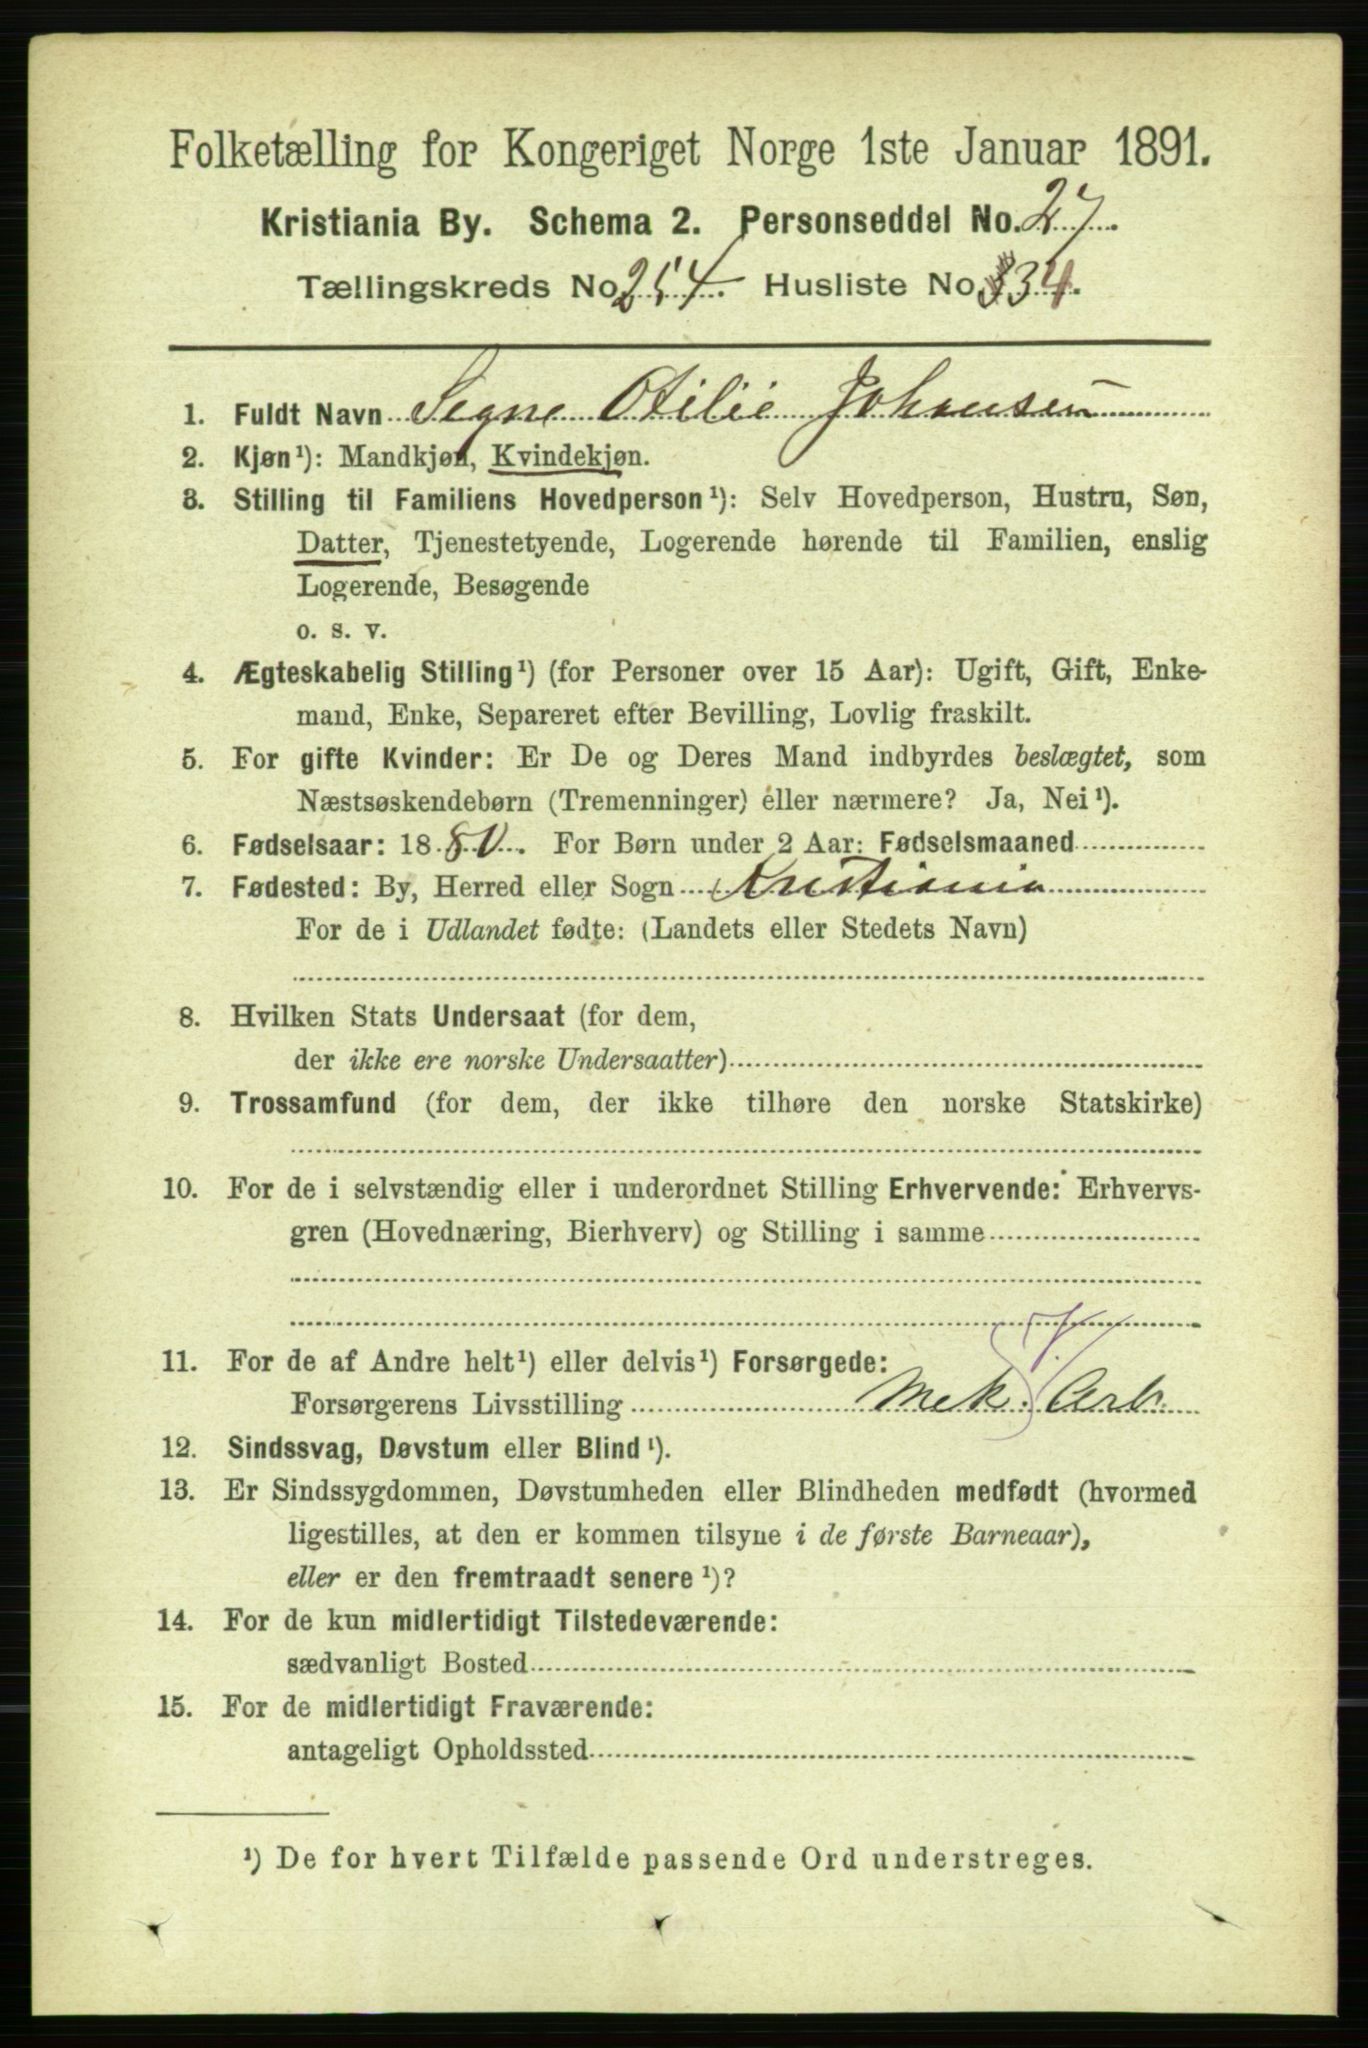 Folketælling for Kongeriget Norge 1ste Januar 1891.
Kristiania By. Schema 2. Personseddel No. 27.
Tællingskreds No 254. Husliste No 34.
1. Fuldt Navn Segne Otilie Johansen
2. Kjøn¹): Mandkjøn, Kvindekjøn.
3. Stilling til Familiens Hovedperson¹): Selv Hovedperson, Hustru, Søn,
Datter, Tjenestetyende, Logerende hørende til Familien, enslig
Logerende, Besøgende
o. s. v.
4. Ægteskabelig Stilling¹) (for Personer over 15 Aar): Ugift, Gift, Enke-
mand, Enke, Separeret efter Bevilling, Lovlig fraskilt.
5. For gifte Kvinder: Er De og Deres Mand indbyrdes beslægtet, som
Næstsøskendebørn (Tremenninger) eller nærmere? Ja, Nei¹).
6. Fødselsaar: 1880. For Børn under 2 Aar: Fødselsmaaned
7. Fødested: By, Herred eller Sogn Kristiania
For de i Udlandet fødte: (Landets eller Stedets Navn)
8. Hvilken Stats Undersaat (for dem,
der ikke ere norske Undersaatter)
9. Trossamfund (for dem, der ikke tilhøre den norske Statskirke)
10. For de i selvstændig eller i underordnet Stilling Erhvervende: Erhvervs-
gren (Hovednæring, Bierhverv) og Stilling i samme
11. For de af Andre helt¹) eller delvis¹) Forsørgede:
Forsørgerens Livsstilling Mek. Arb.
12. Sindssvag, Døvstum eller Blind¹).
13. Er Sindssygdommen, Døvstumheden eller Blindheden medfødt (hvormed
ligestilles, at den er kommen tilsyne i de første Barneaar),
eller er den fremtraadt senere¹)?
14. For de kun midlertidigt Tilstedeværende:
sædvanligt Bosted
15. For de midlertidigt Fraværende:
antageligt Opholdssted
¹) De for hvert Tilfælde passende Ord understreges.